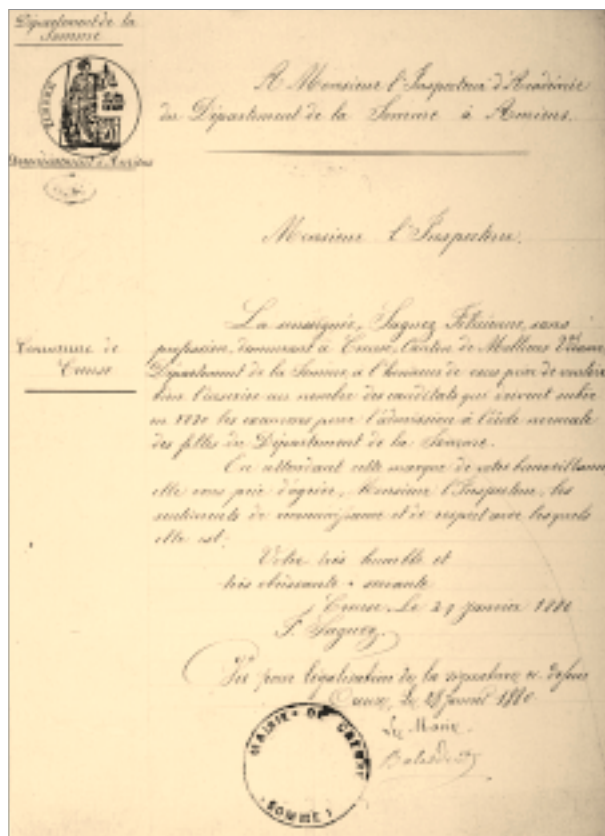 Département de la
Somme
A Monsieur l'Inspecteur d'Académie
du Département de la Somme à Amiens.
Arrondissement d'Amiens
Monsieur l'Inspecteur.
Commune de
Creuse
La soussignée, Saguez Félicienne, sans
profession, demeurant à Creuse, Canton de Molliens Vidame
Département de la Somme, a l'honneur de vous prier de vouloir
bien l'inscrire au nombre des candidats qui doivent subir
en 1880 les examens pour l'admission à l'école normale
des filles du Département de la Somme.
En attendant cette marque de votre bienveillance
elle vous prie d'agréer, Monsieur l'Inspecteur, les
sentiments de reconnaissance et de respect avec lesquels
elle est.
Votre très humble et
très obéissante servante
Creuse, Le 27 Janvier 1880
F. Saguez
Vu pour légalisation de la signature ci-dessus
Creuse, le 28 janvier 1880
Le Maire
MAIRIE DE CREUSE
SOMME